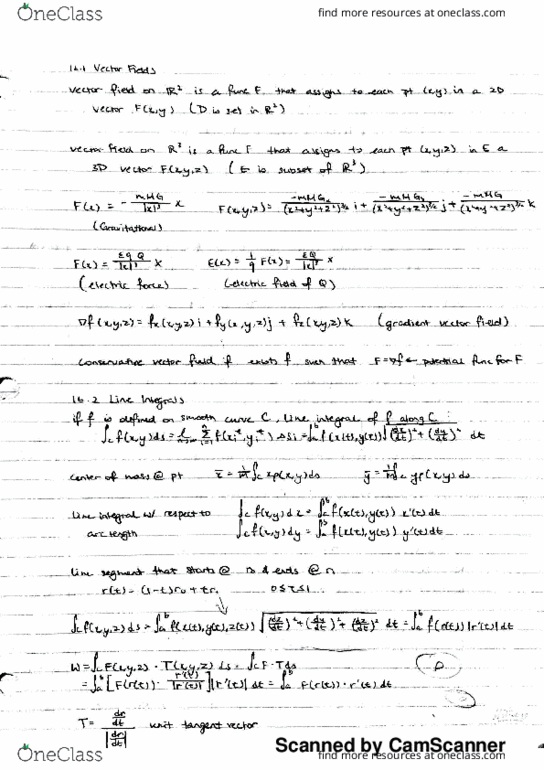 OneClass
find more resources at oneclass.com
16.1 Vector Fields
vector field on ℝ² is a func F, that assigns to each pt (x,y) in a 2D
vector F(x,y) (D is set in ℝ²)
vector field on ℝ³ is a func F that assigns to each pt (x,y,z) in E a
3D vector F(x,y,z) (E is subset of ℝ³)
F(x) = - mMG/|x|³ x F(x,y,z) = -mMGx/(x²+y²+z²)^3/2 i + -mMGy/(x²+y²+z²)^3/2 j + -mMG/(x²+y²+z²)^3/2 k
(Gravitational)
F(x) = εqQ/|x|³ x E(x) = 1/q F(x) = εQ/|x|³ x
(electric force) (electric field of Q)
∇f(x,y,z) = fx(x,y,z)i + fy(x,y,z)j + fz(x,y,z)k (gradient vector field)
conservative vector field if exists f such that F=∇f ← potential func for F
16.2 Line Integrals
if f is defined on smooth curve C, line integral of f along C:
∫c f(x,y)ds = lim n→∞ Σ f(xi*,yi*) Δsi = ∫ₐᵇ f(x(t),y(t)) √((dx/dt)²+(dy/dt)²) dt
center of mass @ pt x̄ = 1/m ∫c xρ(x,y)ds ȳ = 1/m ∫c yρ(x,y)ds
line integral w/ respect to ∫c f(x,y)dx = ∫ₐᵇ f(x(t),y(t)) x'(t)dt
arc length ∫c f(x,y)dy = ∫ₐᵇ f(x(t),y(t)) y'(t)dt
line segment that starts @ r₀ & ends @ r₁
r(t) = (1-t)r₀ + tr₁ 0≤t≤1
∫c f(x,y,z)ds = ∫ₐᵇ f(x(t),y(t),z(t)) √((dx/dt)²+(dy/dt)²+(dz/dt)²) dt = ∫ₐᵇ f(r(t)) |r'(t)| dt
W = ∫c F(x,y,z) · T(x,y,z) ds = ∫c F · T ds
= ∫ₐᵇ [F(r(t)) · r'(t)/|r'(t)|] |r'(t)| dt = ∫ₐᵇ F(r(t)) · r'(t) dt
T = dr/dt / |dr/dt| unit tangent vector
Scanned by CamScanner
OneClass
find more resources at oneclass.com